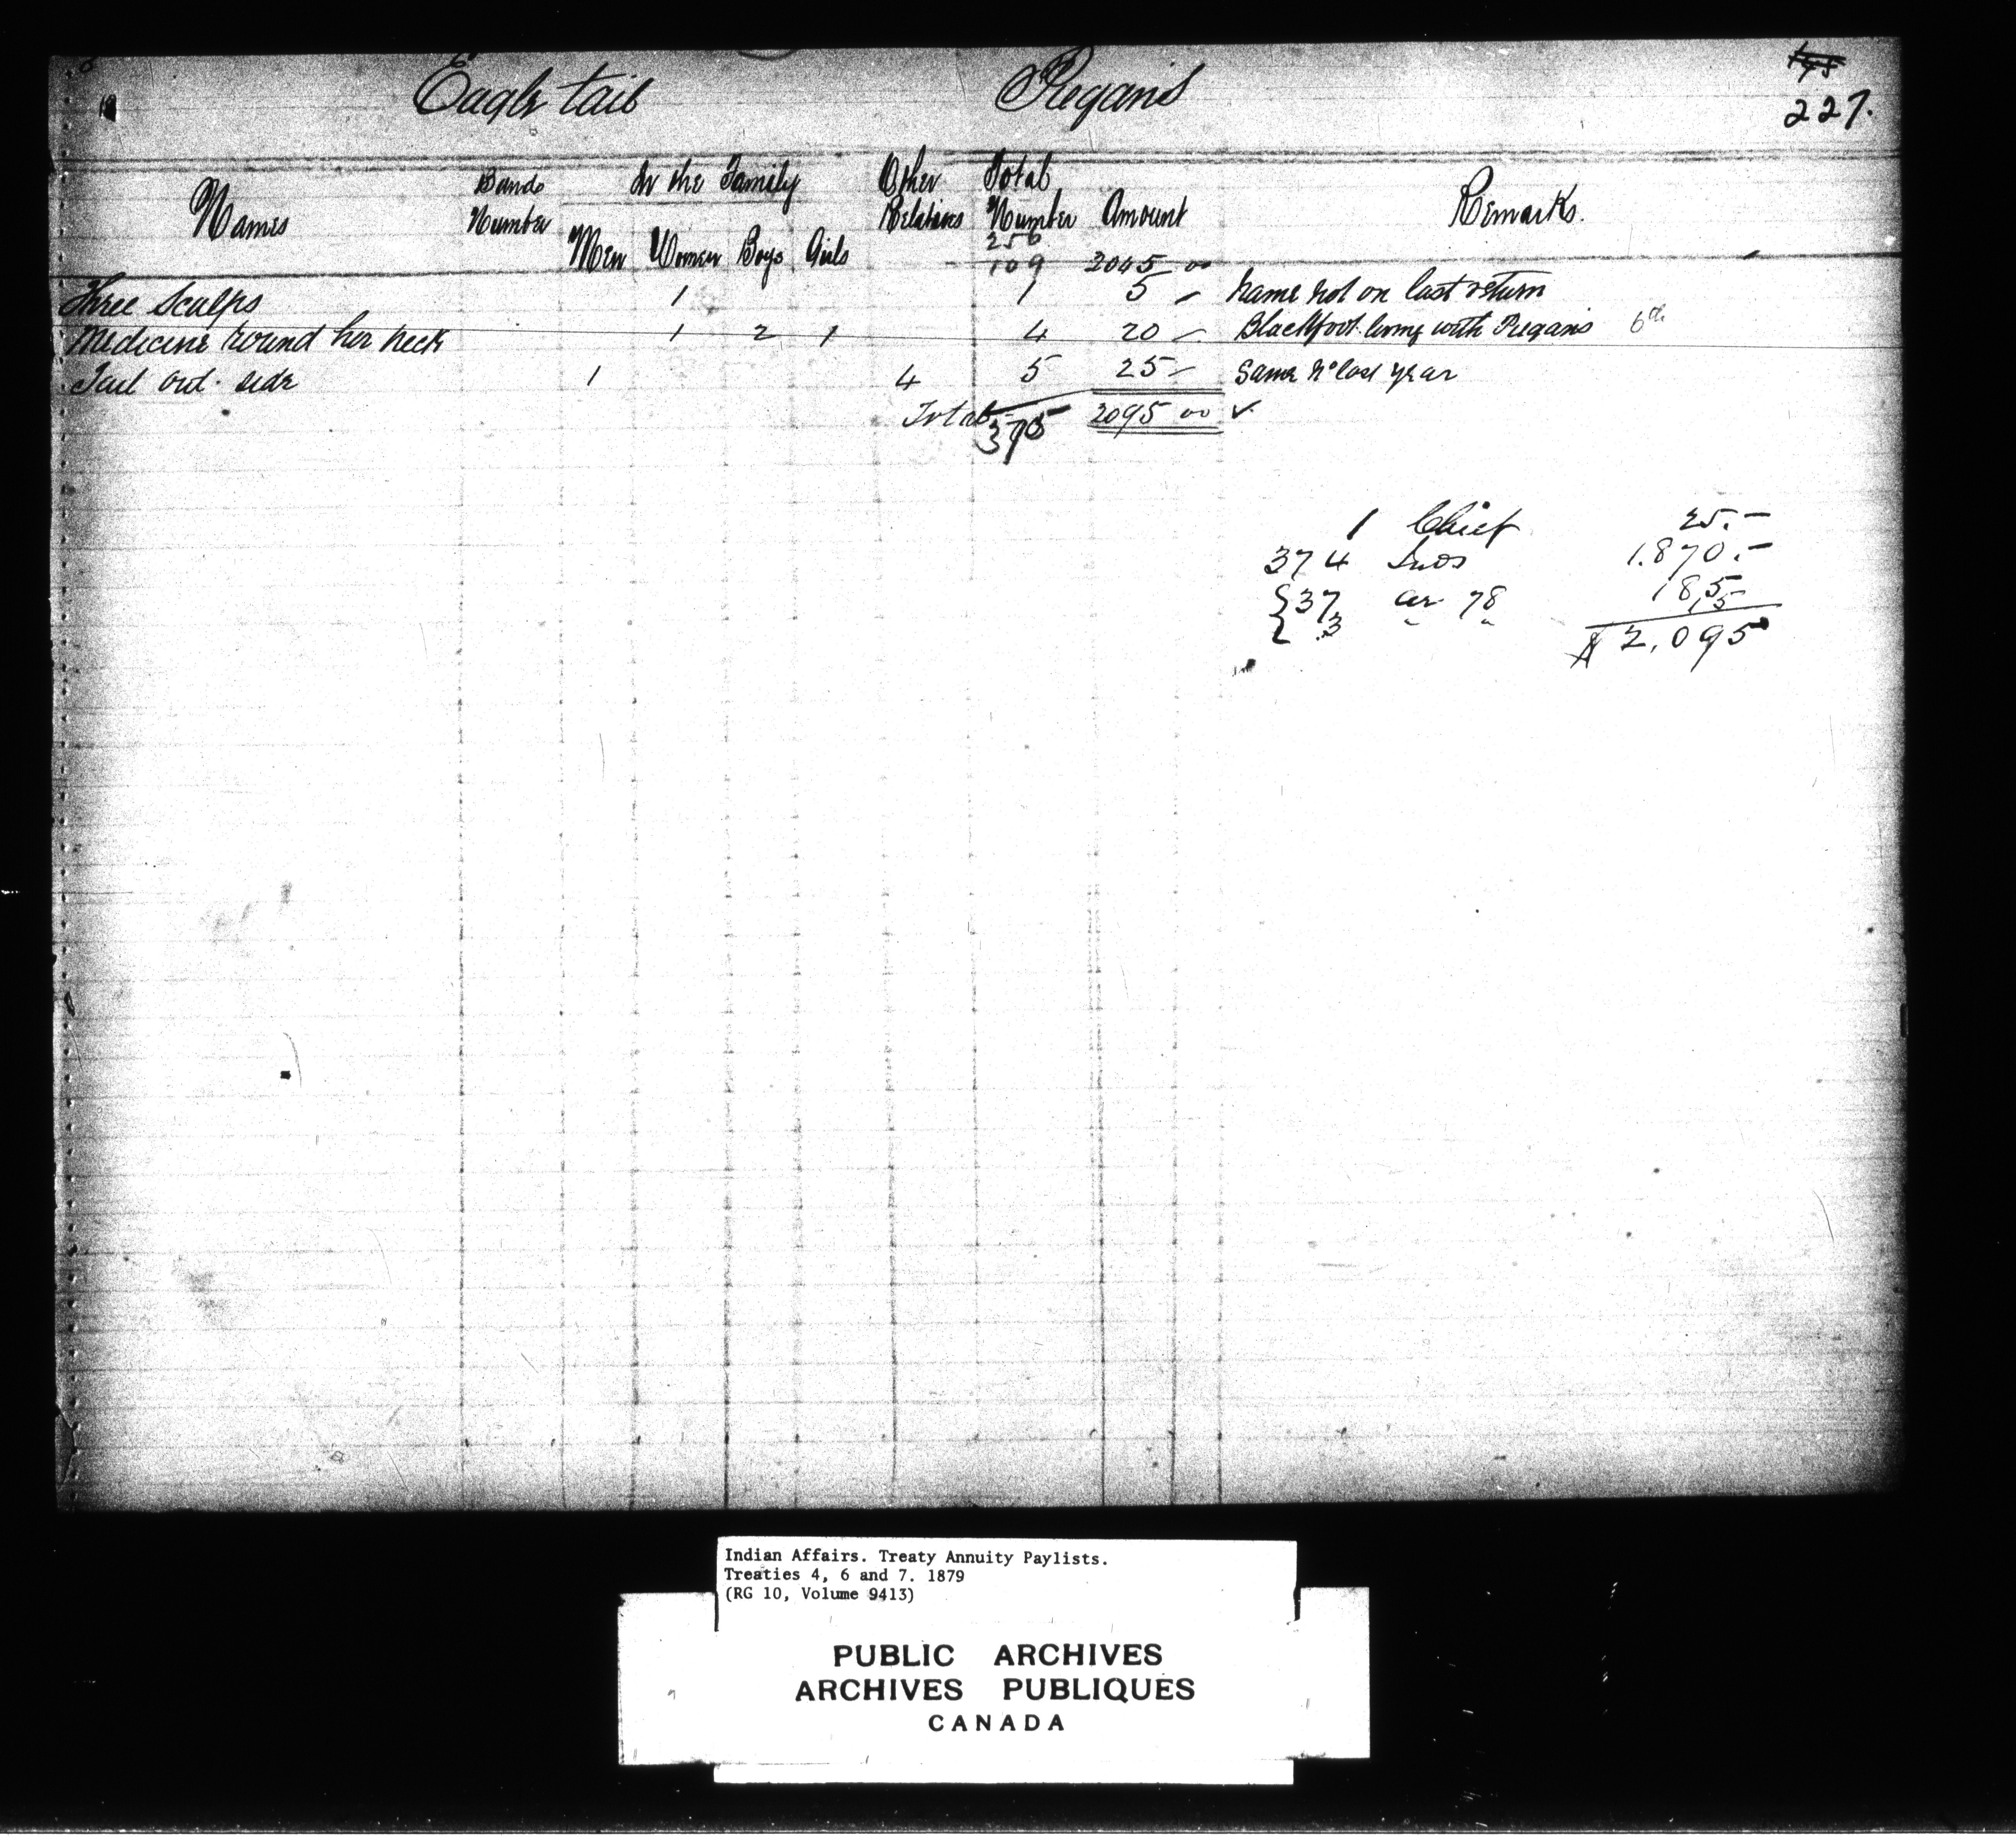 Eagle tail Piegans
227.
Names Bands Number In the Family Other Relations Total Number Amount Remarks.
Men Women Boys Girls
256
109 2045 00
Three Scalps 1 1 5 - Name not on last return
Medicine round her neck 1 2 1 4 20 - Blackfoot living with Piegans 6th
Tail out side 1 4 5 25 - Same No last year
Total 375 2095 00 ✓
1 Chief 25.-
374 Inds 1.870.-
{37 ar 78 185
{ 3 " " 15
$2,095
Indian Affairs. Treaty Annuity Paylists.
Treaties 4, 6 and 7. 1879
(RG 10, Volume 9413)
PUBLIC ARCHIVES
ARCHIVES PUBLIQUES
CANADA